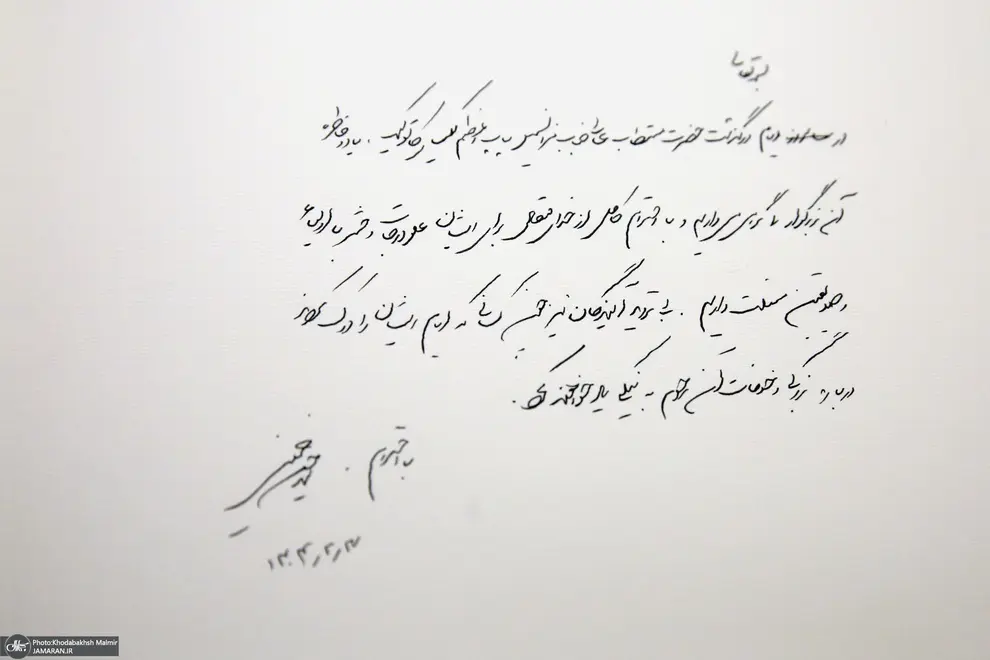 بسمه تعالی
در ایام درگذشت حضرت مستطاب عالیجناب فرانسیس پاپ اعظم کلیسای کاتولیک، یاد و خاطره
آن بزرگوار را گرامی می‌داریم و با احترام کامل از خدای متعالی برای ایشان علو درجات و حشر با اولیاء
و صدیقین مسئلت داریم. بی تردید آیندگان نیز همچون کسانی که ایام ایشان را درک کرده‌اند
درباره بزرگی و خدمات آن مرحوم به نیکی یاد خواهند کرد.
با احترام.
سید حسن خمینی
۱۴۰۴/۲/۳
Photo:Khodabakhsh Malmir
JAMARAN.IR